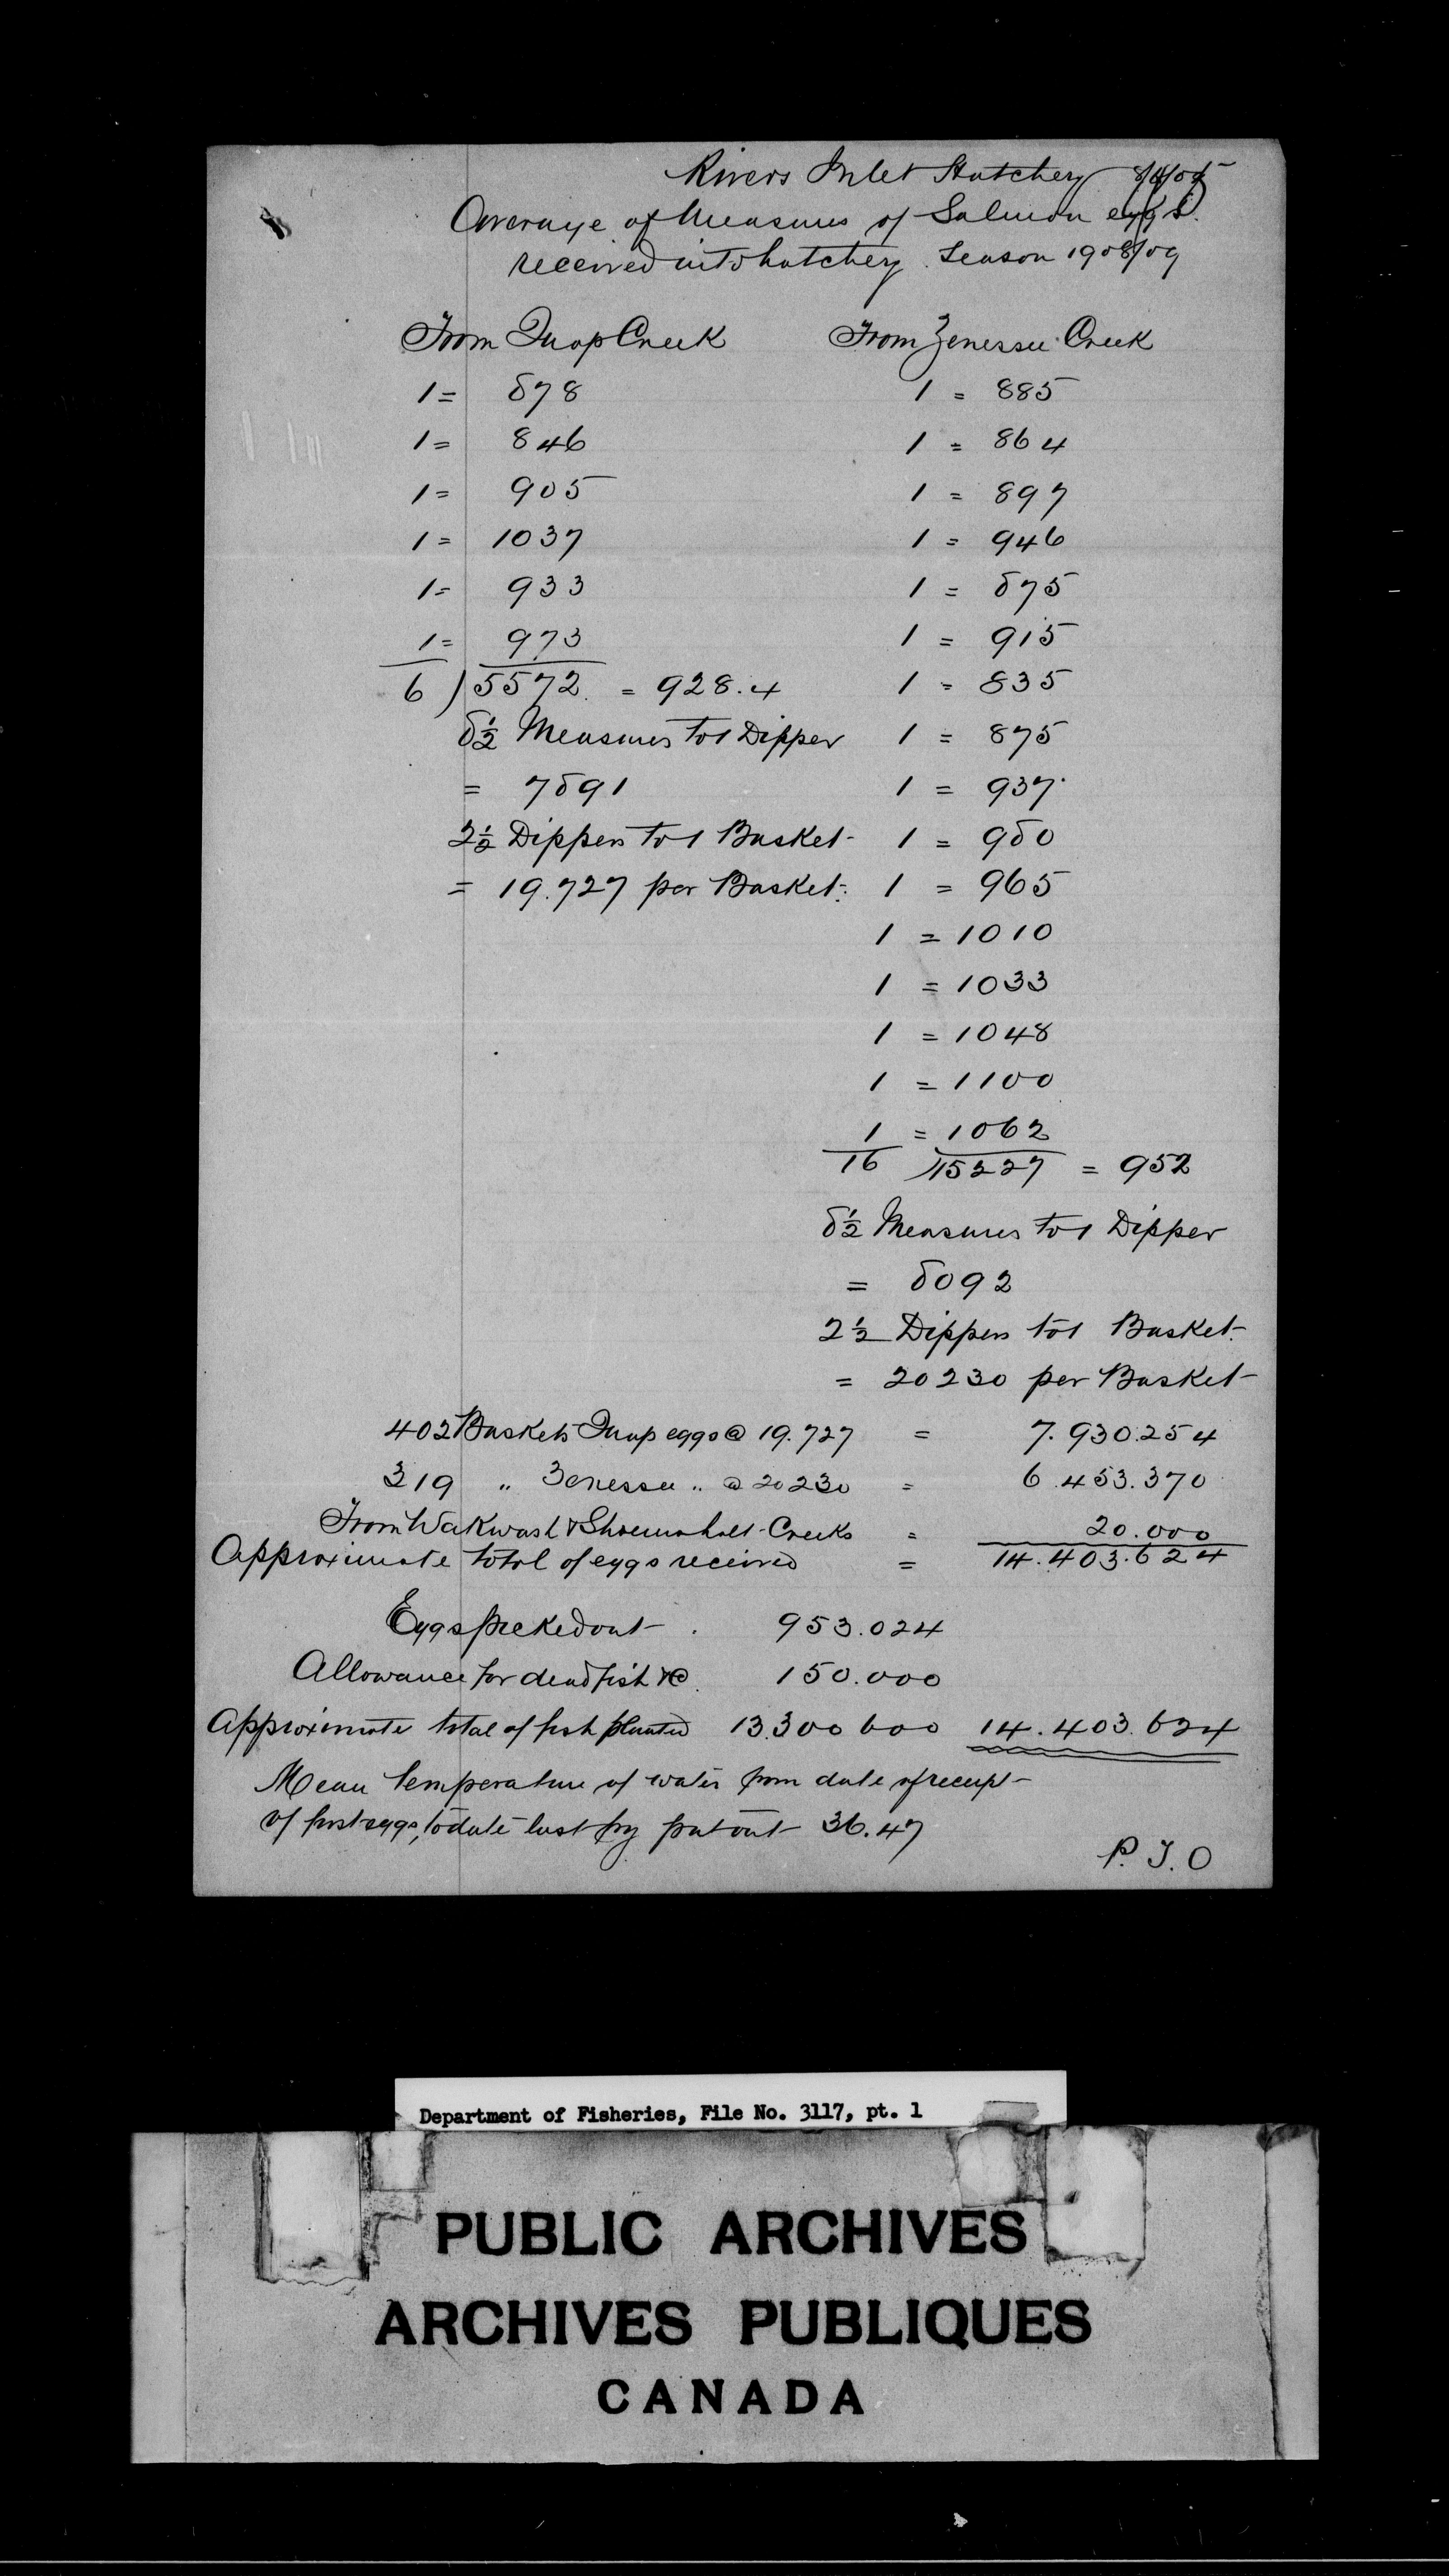 Rivers Inlet Hatchery
Average of Measures of Salmon eggs
received into hatchery. Season 1908/09
From Quap Creek
1 = 878
1 = 846
1 = 905
1 = 1037
1 = 933
1 = 973
6 ) 5572. = 928.4
8½ Measures to 1 Dipper
= 7891
2½ Dippers to 1 Basket
= 19.727 per Basket.
From Zenessee Creek
1 = 885
1 = 864
1 = 897
1 = 946
1 = 875
1 = 915
1 = 835
1 = 875
1 = 937
1 = 980
1 = 965
1 = 1010
1 = 1033
1 = 1048
1 = 1100
1 = 1062
16 ) 15227 = 952
8½ Measures to 1 Dipper
= 8092
2½ Dippers to 1 Basket.
= 20230 per Basket
402 Baskets Quap eggs @ 19.727 = 7.930.254
319 " Zenessee " @ 20230 = 6.453.370
From Wakwash & Creeks = 20.000
Approximate total of eggs received = 14.403.624
Eggs picked out . 953.024
Allowance for dead fish &c. 150.000
Approximate total of fish planted 13.300 600 14.403.624
Mean temperature of water from date of receipt
of first eggs, to date last fry put out 36.47
P.T.O
Department of Fisheries, File No. 3117, pt. 1
PUBLIC ARCHIVES
ARCHIVES PUBLIQUES
CANADA